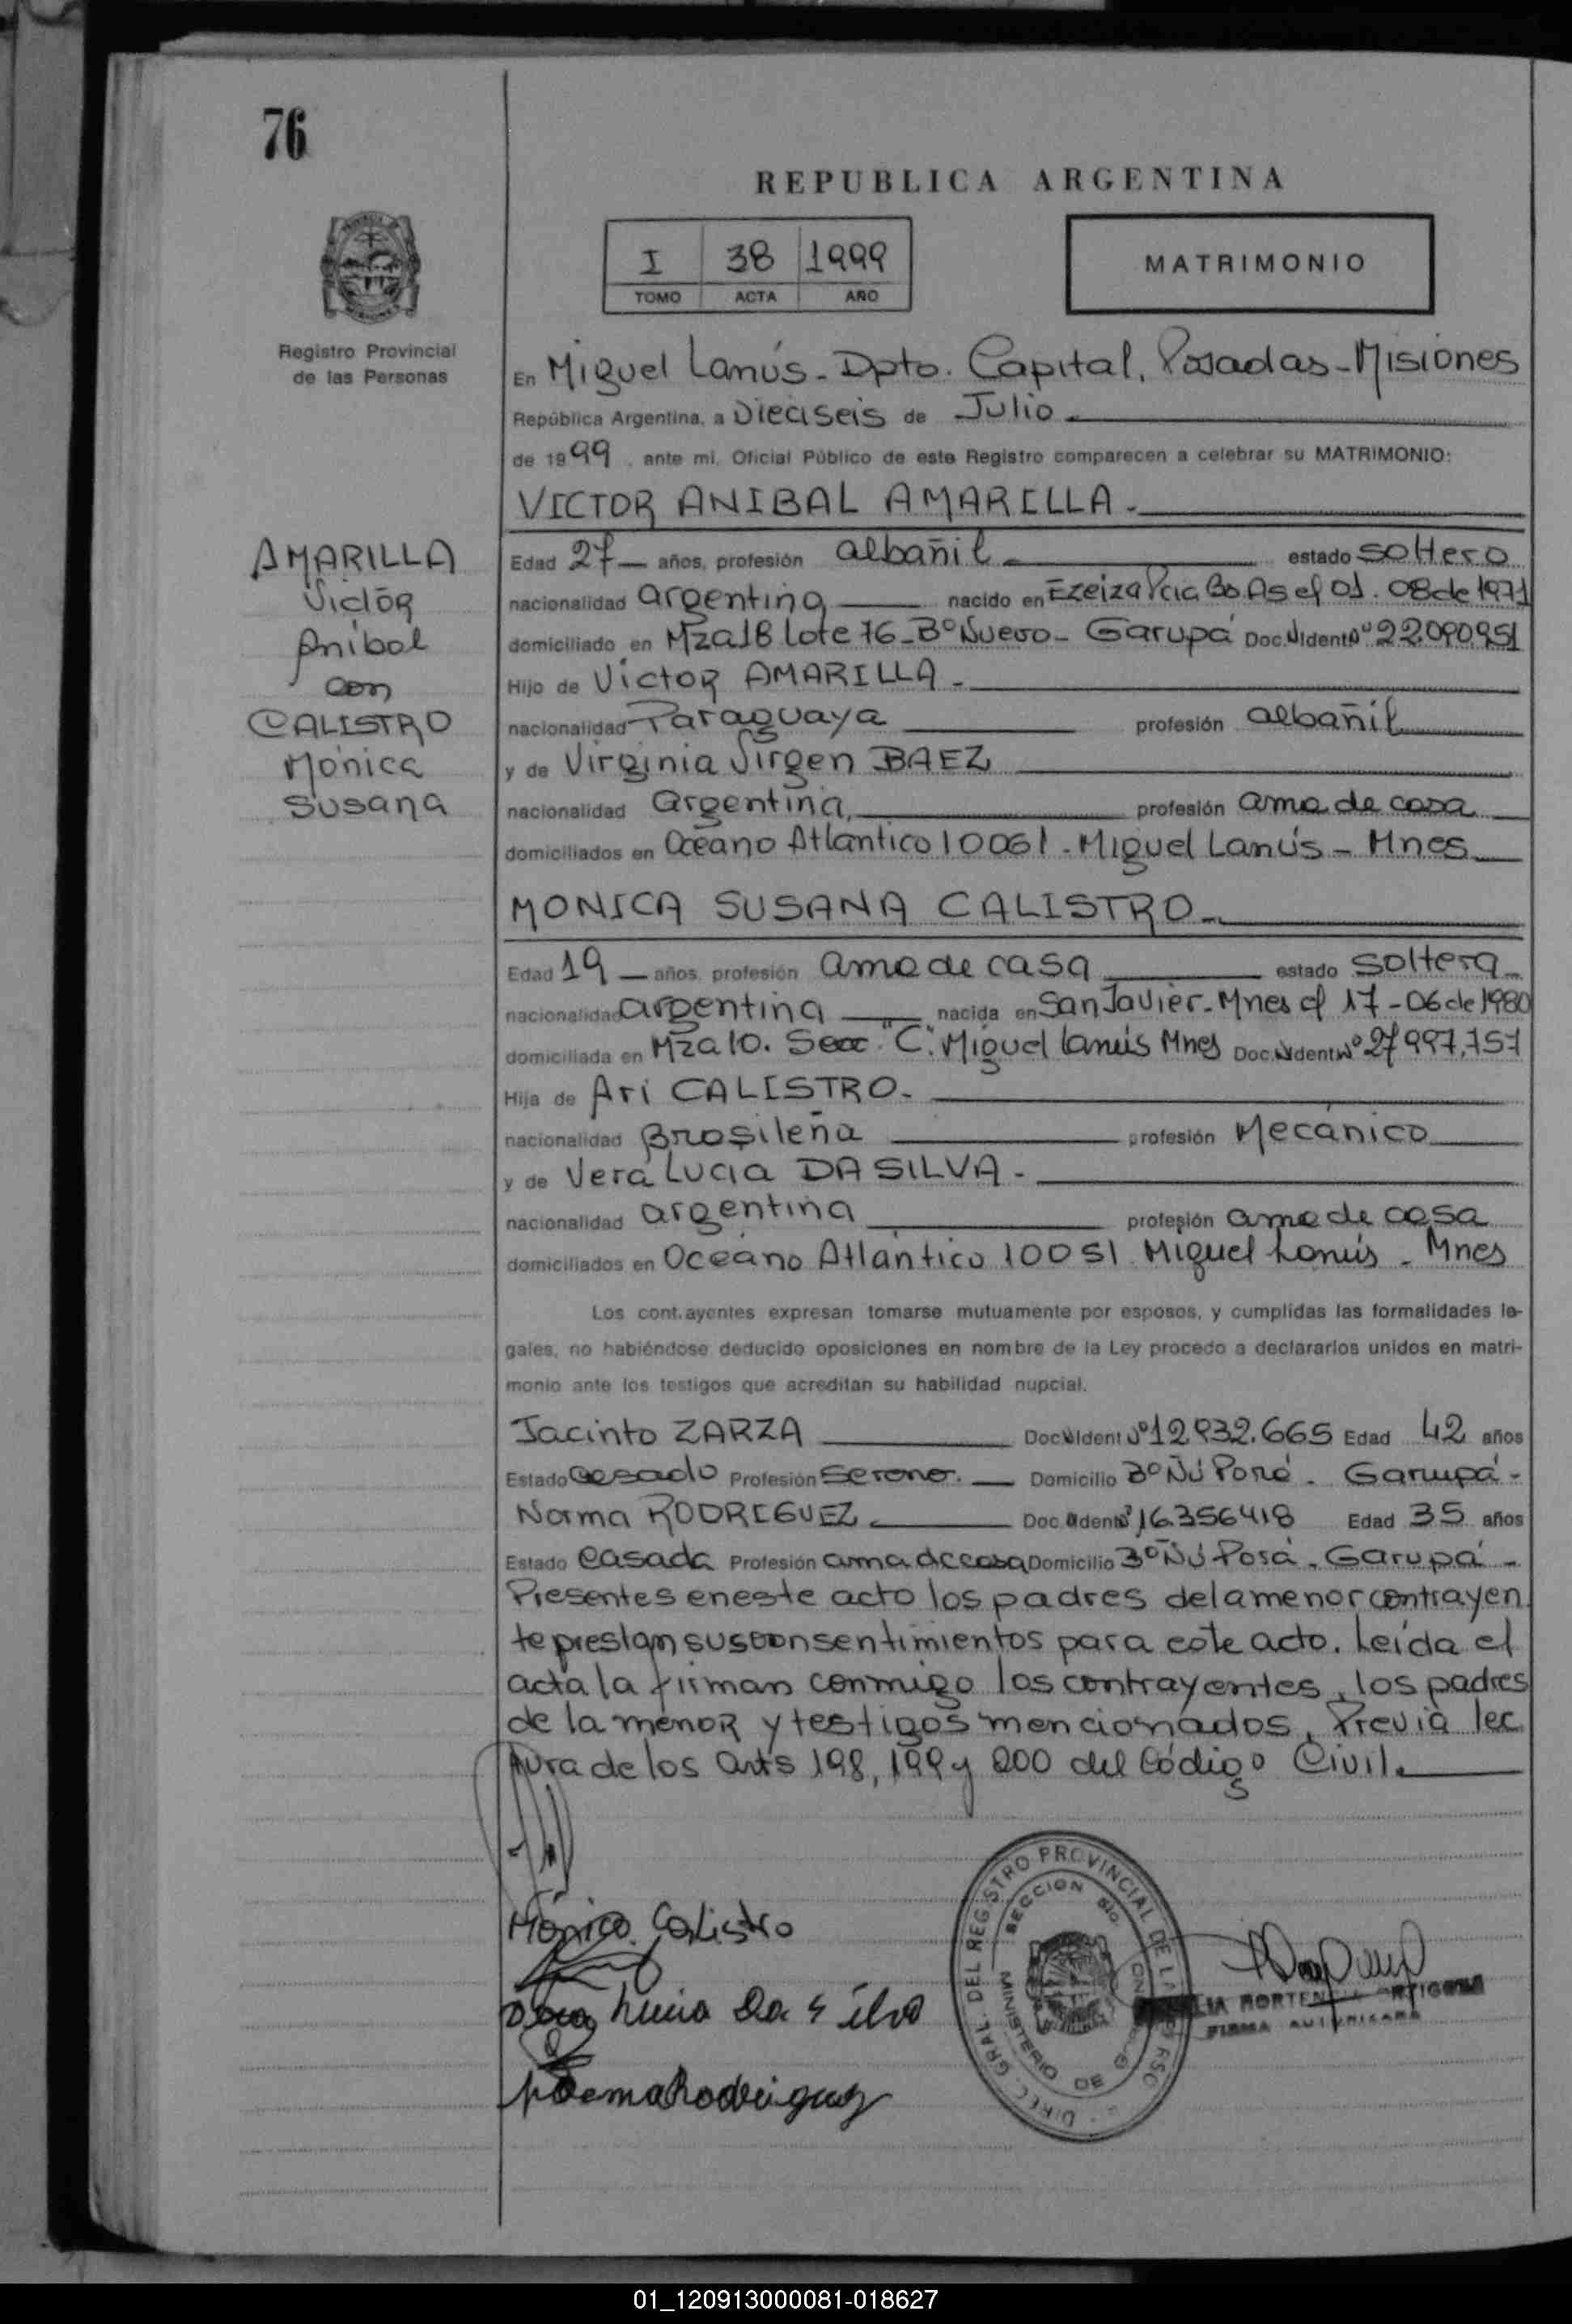 76
REPUBLICA ARGENTINA
I 38 1999
TOMO ACTA AÑO
MATRIMONIO
Registro Provincial
de las Personas
En Miguel Lanús - Dpto. Capital, Posadas - Misiones
República Argentina, a Dieciseis de Julio
de 1999, ante mi, Oficial Público de este Registro comparecen a celebrar su MATRIMONIO:
VICTOR ANIBAL AMARILLA.
AMARILLA
Victor
Anibal
con
CALISTRO
Mónica
Susana
Edad 27 años, profesión albañil estado soltero
nacionalidad argentina nacido en Ezeiza Pcia Bs As el 01.08 de 1971
domiciliado en Mza 18 Lote 16 - Bº Nuevo - Garupá Doc. N. Ident Nº 22.090.951
Hijo de Victor AMARILLA -
nacionalidad Paraguaya profesión albañil
y de Virginia Virgen BAEZ
nacionalidad argentina, profesión ama de casa
domiciliados en Oceano Atlantico 10061 - Miguel Lanús - Mnes
MONICA SUSANA CALISTRO
Edad 19 años, profesión ama de casa estado soltera
nacionalidad argentina nacida en San Javier - Mnes el 17-06 de 1980
domiciliada en Mza 10. Secc "C". Miguel Lanús Mnes Doc. N. Ident Nº 27.997.757
Hija de Ari CALISTRO.
nacionalidad Brasileña profesión Mecánico
y de Vera Lucia DA SILVA -
nacionalidad argentina profesión ama de casa
domiciliados en Océano Atlántico 10051 Miguel Lanús - Mnes
Los contrayentes expresan tomarse mutuamente por esposos, y cumplidas las formalidades le-
gales, no habiéndose deducido oposiciones en nombre de la Ley procedo a declararlos unidos en matri-
monio ante los testigos que acreditan su habilidad nupcial.
Jacinto ZARZA Doc N Ident Nº 12.932.665 Edad 42 años
Estado Casado Profesión Sereno. Domicilio Bº Ñu Porá - Garupá -
Norma RODRIGUEZ Doc. N Ident Nº 16.356418 Edad 35 años
Estado Casada Profesión ama de casa Domicilio Bº Ñu Porá - Garupá -
Presentes en este acto los padres de la menor contrayen
te prestan sus consentimientos para este acto. Leída el
acta la firman conmigo los contrayentes, los padres
de la menor y testigos mencionados, Previa lec
tura de los arts 198, 199 y 200 del Código Civil.
Mónica Calistro
Lucia Da Silva
Norma Rodriguez
DIREC. GRAL. DEL REGISTRO PROVINCIAL DE LAS
SECCION
MINISTERIO DE
HORTENCIA
FIRMA AUTORIZADA
01_120913000081-018627